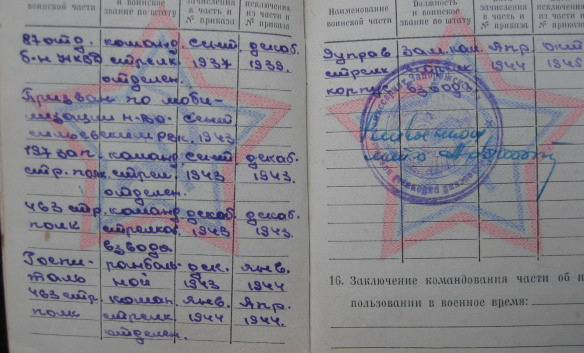 воинской части
и воинское звание по штату
зачисления в часть и № приказа
исключения из части и № приказа
87 отд. команд. сент. декаб.
б-н НКВД стрелк. 1937 1939.
отделен.
Призван по моби-
лизации Н-Во- Сент
РВК. 1943
197 зап. команд сент декаб.
стр. полк. стрел. 1943 1943.
отделен.
463 стр. команд декаб. декаб.
полк стрелков. 1943 1943.
взвода
Госпи- ранболь- дек. янв.
таль ной 1943 1944
463 стр. коман. янв. Апр.
полк стрелк 1944 1944.
отделен.
Наименование воинской части
Должность и воинское звание по штату
зачисления в часть и № приказа
исключения из части и № приказа
управ зам. ком. Апр. окт
стрелк стрелк 1944 1945
корпус взвода
16. Заключение командования части об и
пользовании в военное время: